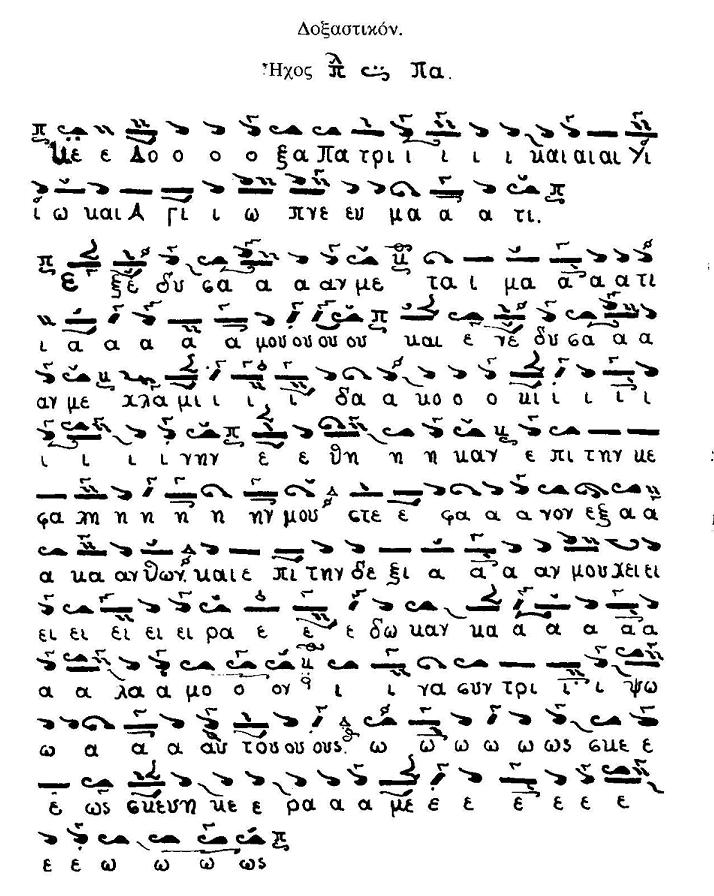 Δοξαστικόν.
Ἦχος λ π Πα.
ε Δο ο ο ο ξα Πα τρι ι ι ι ι και αι αι Υι
ι ω και Α γι ι ω πνε ευ μα α α τι.
ε ξε δυ σα α α αν με τα ι μα α α α τι
ι α α α α α μου ου ου ου και ε νε δυ σα α α
αν με χλα μι ι ι ι δα α κο ο ο κι ι ι ι ι
ι ι ι ι νην ε ε θη η η καν ε πι την κε
φα λη η η η η ην μου στε ε φα α α νον εξ α α
α κα αν θων. και ε πι την δε ξι α α α αν μου χει ει
ει ει ει ει ει ρα ε ε ε δω καν κα α α α α α
α α λα α μο ο ον ι ι να συν τρι ι ι ψω
ω α α α αυ του ου ους. ω ω ω ω ω ως σκε ε
ε ως σκευη κε ε ρα α α με ε ε ε ε ε
ε ε ω ω ω ως